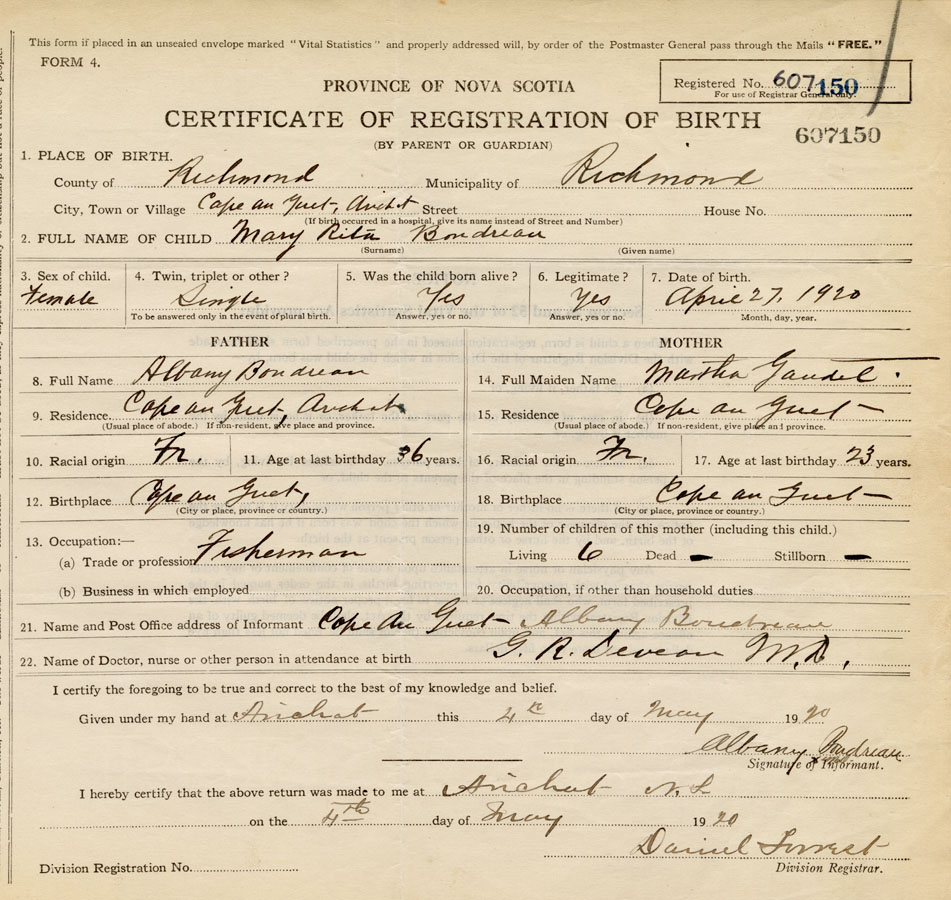 This form if placed in an unsealed envelope marked "Vital Statistics" and properly addressed will, by order of the Postmaster General pass through the Mails "FREE."
FORM 4.
Registered No. 607150
For use of Registrar General only.
PROVINCE OF NOVA SCOTIA
CERTIFICATE OF REGISTRATION OF BIRTH
607150
(BY PARENT OR GUARDIAN)
1. PLACE OF BIRTH.
County of Richmond Municipality of Richmond
City, Town or Village Cape au Guet, Arichat Street House No.
(If birth occurred in a hospital, give its name instead of Street and Number)
2. FULL NAME OF CHILD Mary Rita Boudreau
(Surname) (Given name)
3. Sex of child. 4. Twin, triplet or other? 5. Was the child born alive? 6. Legitimate? 7. Date of birth.
Female Single Yes Yes April 27, 1920
To be answered only in the event of plural birth. Answer, yes or no. Answer, yes or no. Month, day, year.
FATHER MOTHER
8. Full Name Albany Boudreau 14. Full Maiden Name Martha Gaudet.
9. Residence. Cape au Guet, Arichat 15. Residence Cape au Guet
(Usual place of abode.) If non-resident, give place and province. (Usual place of abode.) If non-resident, give place and province.
10. Racial origin Fr. 11. Age at last birthday 36 years. 16. Racial origin Fr. 17. Age at last birthday 23 years.
12. Birthplace Cape au Guet, 18. Birthplace Cape au Guet
(City or place, province or country.) (City or place, province or country.)
13. Occupation:— 19. Number of children of this mother (including this child.)
(a) Trade or profession Fisherman Living 6 Dead — Stillborn —
(b) Business in which employed 20. Occupation, if other than household duties
21. Name and Post Office address of Informant Cape Au Guet Albany Boudreau
22. Name of Doctor, nurse or other person in attendance at birth G. R. Deveau M.D.,
I certify the foregoing to be true and correct to the best of my knowledge and belief.
Given under my hand at Arichat this 4th day of May 1920
Albany Boudreau
Signature of Informant.
I hereby certify that the above return was made to me at Arichat N.S.
on the 4th day of May 1920
Daniel Forrest
Division Registration No. Division Registrar.